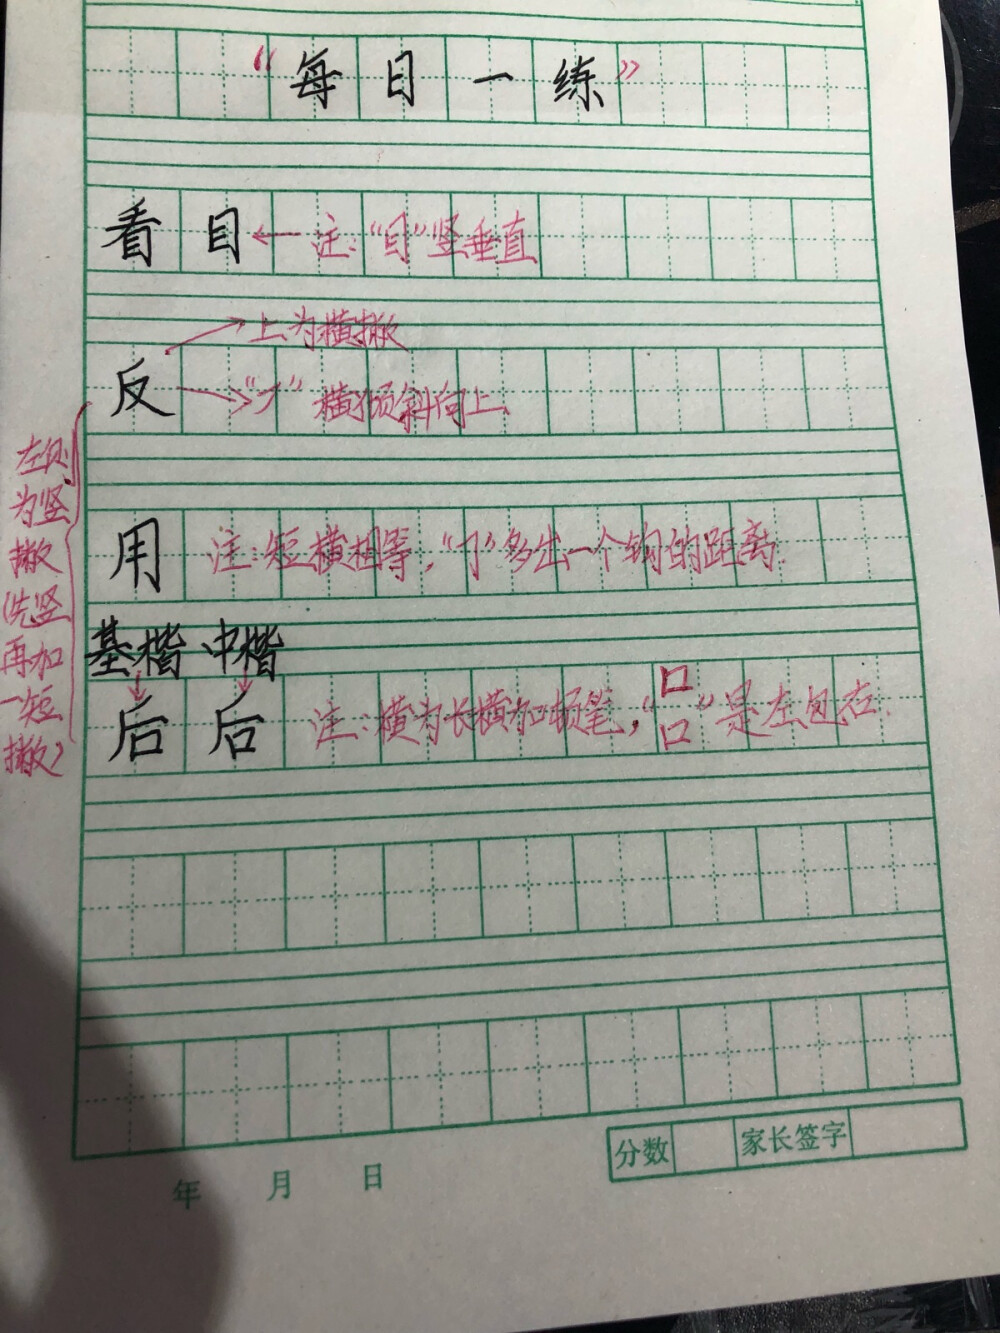 “每日一练”
看目←注:“目”竖垂直
→上为横撇
反→“丆”横倾斜向上
左侧
为竖
撇
(先竖
再加
一短
撇)
用 注:短横相等,“㇆”多出一个钩的距离.
基楷 中楷
后 后 注:横为长横加顿笔,“口口”是左包右.
分数 家长签字
年 月 日